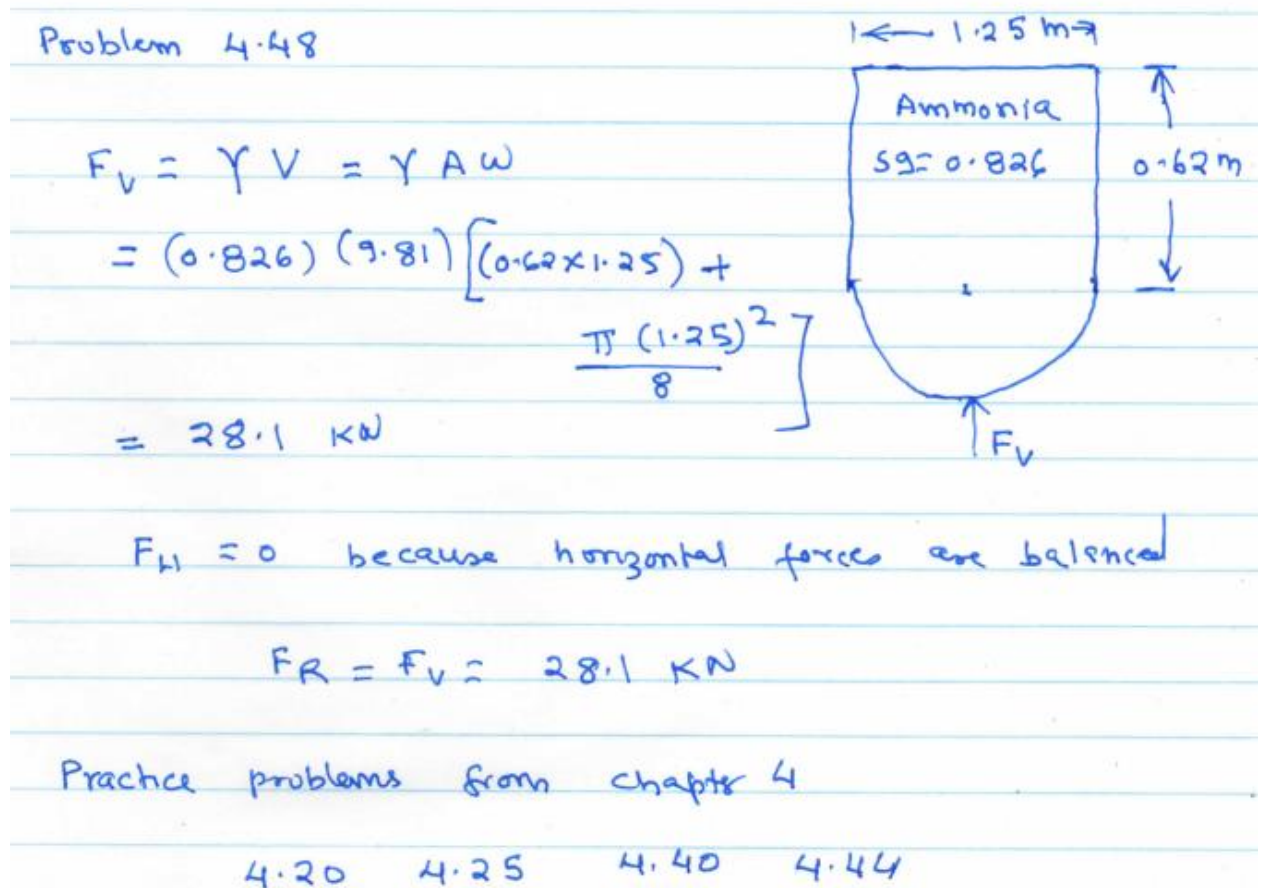 Problem 4.48
1.25 m
Ammonia
sg= 0.826
0.62 m
F_V = γ V = γ A W
= (0.826) (9.81) [(0.62×1.25) +
π (1.25)² / 8 ]
= 28.1 KN
F_V
F_H = 0 because horizontal forces are balanced
F_R = F_V = 28.1 KN
Practice problems from chapter 4
4.20 4.25 4.40 4.44